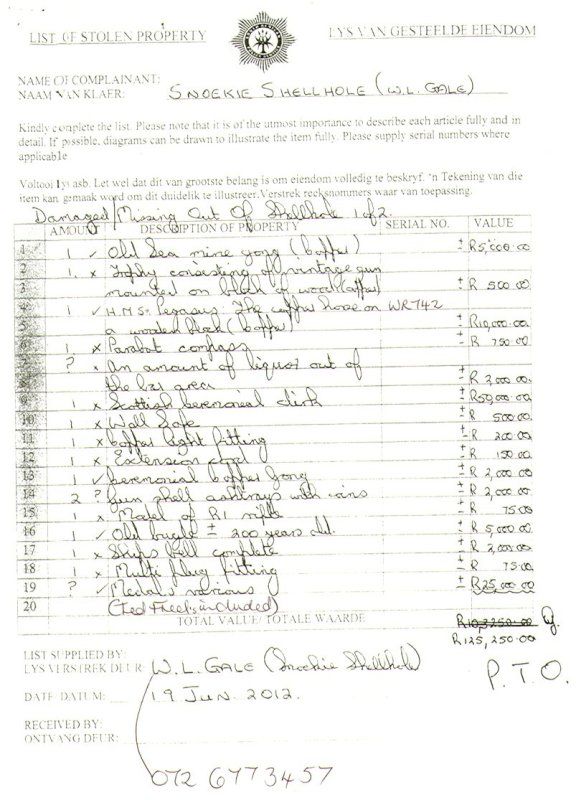 LIST OF STOLEN PROPERTY
LYS VAN GESTEELDE EIENDOM
NAME OF COMPLAINANT:
NAAM VAN KLAER: SNOEKIE SHELLHOLE (W.L. GALE)
Kindly complete the list. Please note that it is of the utmost importance to describe each article fully and in
detail. If possible, diagrams can be drawn to illustrate the item fully. Please supply serial numbers where
applicable
Voltooi lys asb. Let wel dat dit van grootste belang is om eiendom volledig te beskryf. 'n Tekening van die
item kan gemaak word om dit duidelik te illustreer. Verstrek reeksnommers waar van toepassing.
Damaged/Missing Out Of Shellhole 1 of 2.
AMOUNT DESCRIPTION OF PROPERTY SERIAL NO. VALUE
1 1 ✓ Old Sea mine gong (copper) ± R5,000.00
2 1. x Trophy consisting of vintage gun
3 mounted on block of wood (copper) ± R 500.00
4 1 ✓ H.M.S. Pegasus. The copper horse on WR742
5 a wooden block (copper) ± R10,000.00.
6 1 x Parabat compass ± R 750.00
7 ? x An amount of liquor out of
8 the bar area ± R 2,000.00.
9 1 x Scottish ceremonial dirk ± R50,000.00.
10 1 x Wall Safe ± R 500.00
11 1 x Copper light fitting ± R 200.00
12 1 x Extension cord ± R 150.00
13 1 ✓ Ceremonial Copper Gong ± R 2,000.00
14 2 ? Gun shell ashtrays with coins ± R 2,000.00.
15 1 x Model of R1 rifle ± R 75.00
16 1 ✓ Old bugle ± 200 years old. ± R 5,000.00
17 1 x Ships bell complete ± R 2,000.00
18 1 x Multi plug fitting ± R 75.00
19 ? ✓ Medals various ± R25,000.00
20 (Ted included)
TOTAL VALUE/ TOTALE WAARDE R10,3250.00
R125,250.00
LIST SUPPLIED BY:
LYS VERSTREK DEUR: W.L. GALE (Snoekie Shellhole)
P.T.O.
DATE DATUM: 19 JUN. 2012.
RECEIVED BY:
ONTVANG DEUR:
072 6773457